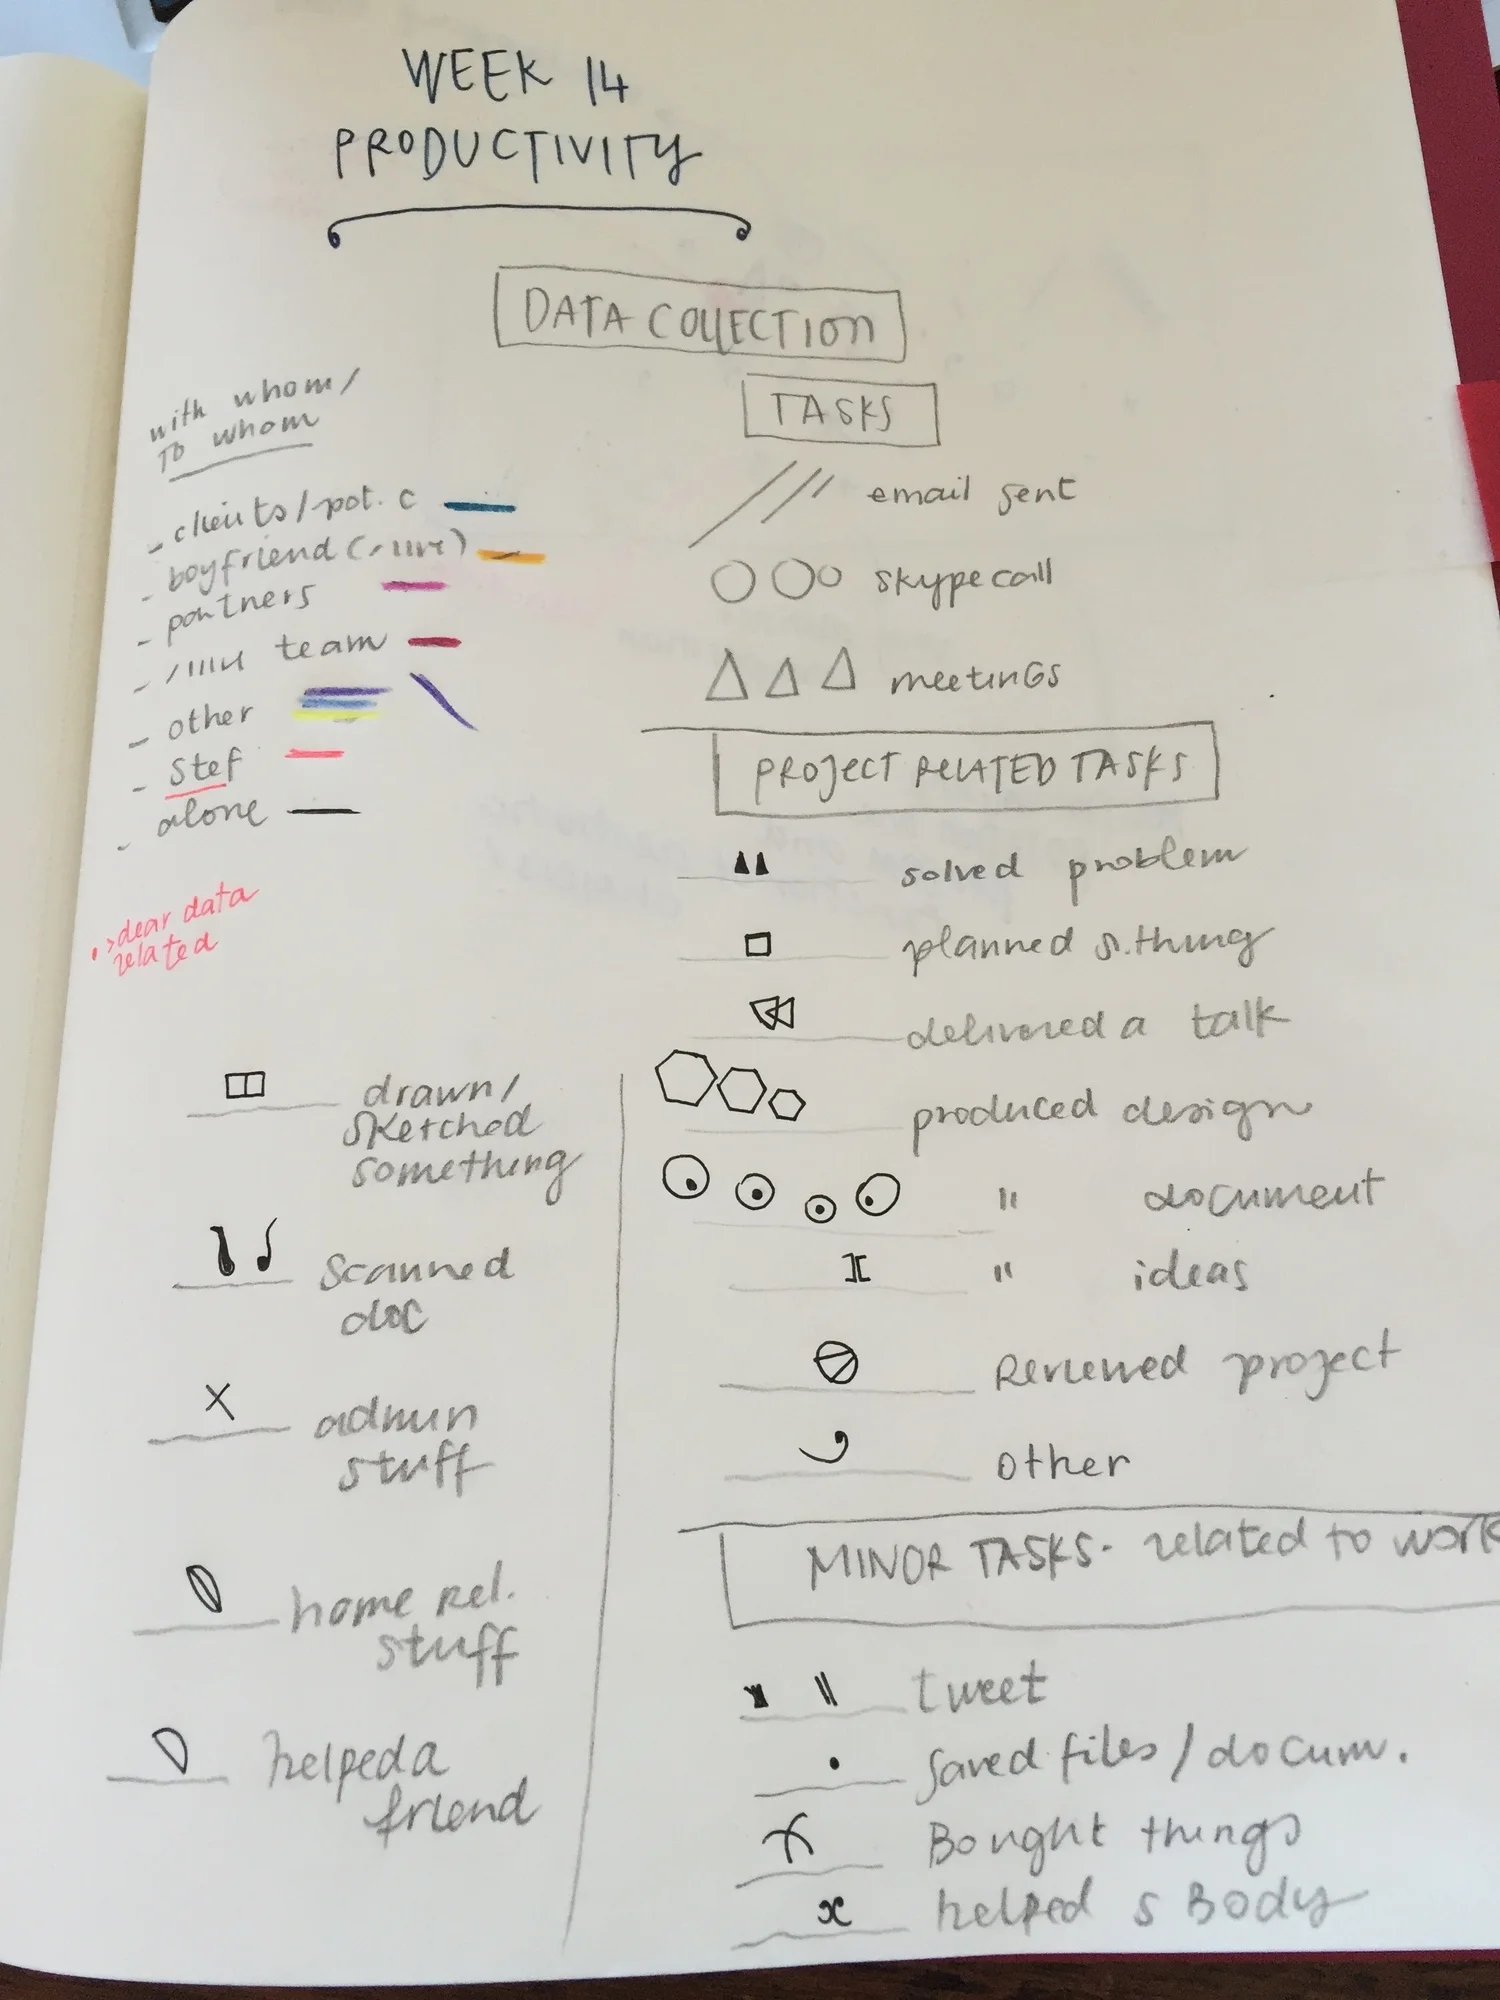 WEEK 14
PRODUCTIVITY
DATA COLLECTION
with whom/
To whom
- clients/pot. c
- boyfriend
- partners
- team
- other
- Stef
- alone
. > dear data
related
TASKS
email sent
skype call
meetings
PROJECT RELATED TASKS
solved problem
planned s.thing
delivered a talk
produced design
" document
" ideas
Reviewed project
other
drawn/
sketched
something
scanned
doc
admin
stuff
home rel.
stuff
helped a
friend
MINOR TASKS - related to work
tweet
saved files / docum.
Bought things
helped s Body